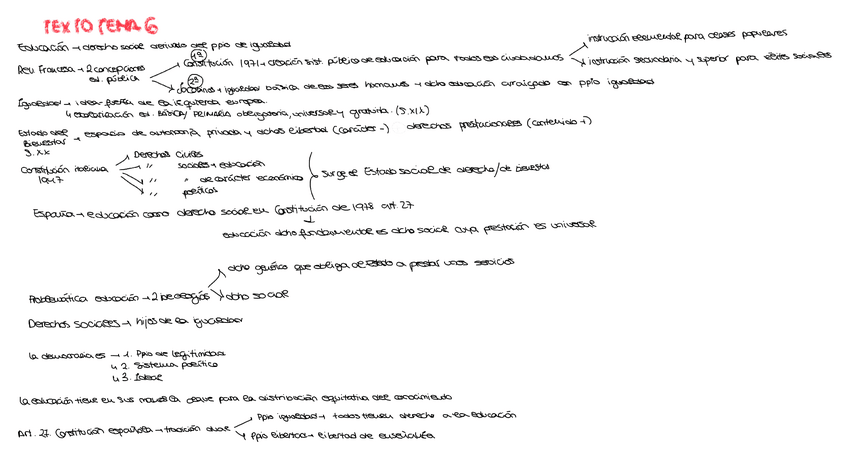 TEXTO TEMA 6
Educación → derecho social derivado del ppio de igualdad
instrucción elemental para clases populares
Rev Francesa → 2 concepciones ed. pública
1ª
Constitución 1971 → creación sist. público de educación para todos los ciudadanos
instrucción secundaria y superior para élites sociales
2ª
Jacobinos → igualdad básica de los seres humanos → dcho educación arraigado con ppio igualdad
Igualdad → idea fuerza de la izquierda europea
↳ ed. BÁSICA/ PRIMARIA obligatoria, universal y gratuita. (S.XIX)
Estado del Bienestar S.XX → espacio de autonomía privada y dchos libertad (carácter -) derechos prestacionales (contenido +)
Constitución italiana 1947
Derechos civiles
" sociales → educación
" de carácter económico
" políticos
Surge el Estado social de derecho/de bienestar
España → educación como derecho social en Constitución de 1978 art. 27
educación dcho fundamental es dcho social cuya prestación es universal
dcho genérico que obliga al Estado a prestar unos servicios
Problemática educación → 2 ideologías
dcho social
Derechos sociales → hijos de la igualdad
la democracia es → 1. Ppio de legitimidad
↳ 2. Sistema político
↳ 3. Ideal
la educación tiene en sus manos la clave para la distribución equitativa del conocimiento
Ppio igualdad → todos tienen derecho a la educación
Art. 27. Constitución española → tradición dual
Ppio libertad → libertad de enseñanza